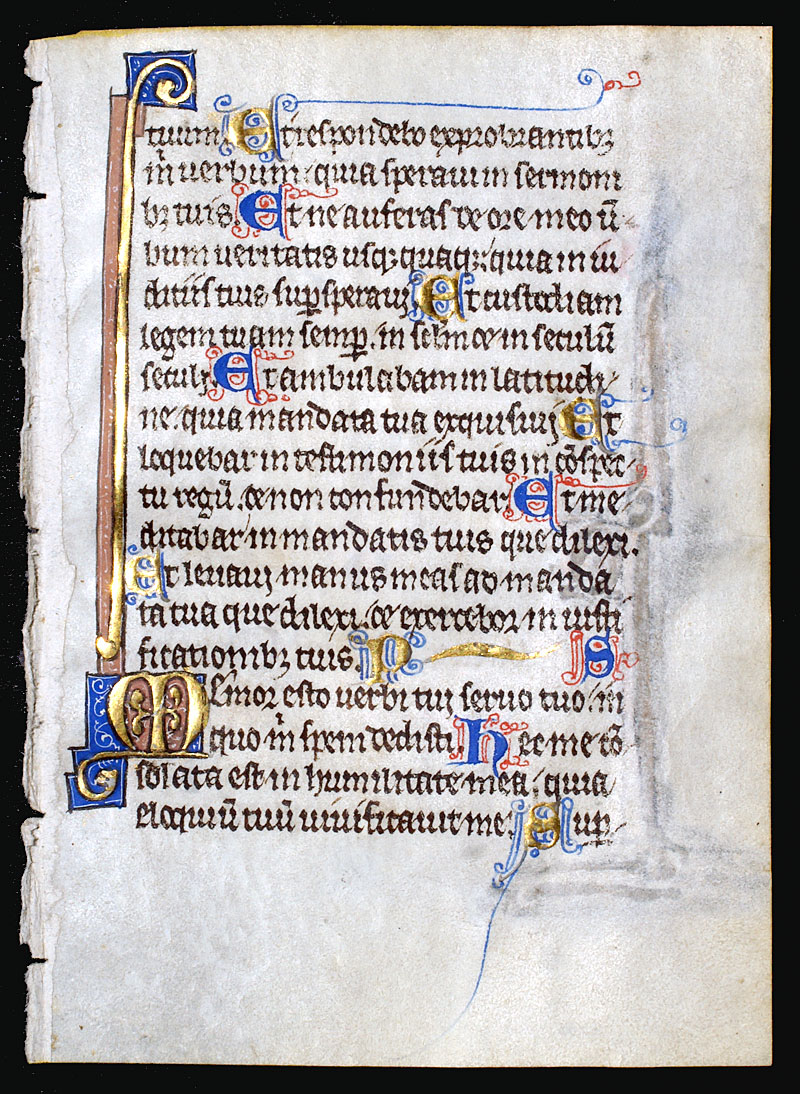 tuum. Et respondebo exprobrantibꝫ
m̄ uerbum. quia speraui in sermoni
bꝫ tuis. Et ne auferas de ore meo ū
bum ueritatis usqꝫ quaqꝫ. quia in iu
diciis tuis suꝑsperaui. Et custodiam
legem tuam semꝑ. in sclm ⁊ in seculū
seculi. Et ambulabam in latitudi
ne. quia mandata tua exquisiui. Et
loquebar in testimoniis tuis in cōspec
tu regū. ⁊ non confundebar. Et me
ditabar in mandatis tuis que dilexi.
Et leuaui manus meas ad manda
ta tua que dilexi. ⁊ exercebor in iusti
ficationibꝫ tuis.
Memor esto uerbi tui seruo tuo. in
quo m̄ spem dedisti. Hec me cō
solata est in humilitate mea. quia
eloquiū tuū uiuificauit me. Suꝑ